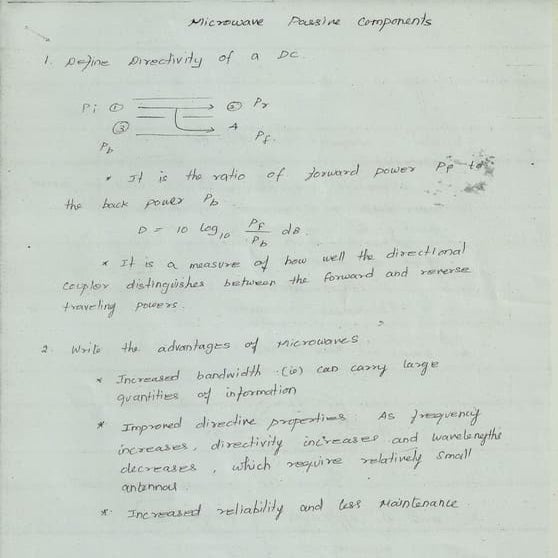 Microwave Passive Components
1. Define Directivity of a DC.
Pi ① ② Pr
③ 4
Pb Pf.
* It is the ratio of forward power Pf to
the back power Pb
D = 10 log10 Pf/Pb dB.
* It is a measure of how well the directional
coupler distinguishes between the forward and reverse
traveling powers.
2. Write the advantages of Microwaves.
* Increased bandwidth (ie) can carry large
quantities of information
* Improved directive properties. As frequency
increases, directivity increases and wavelengths
decreases, which require relatively small
antennas.
* Increased reliability and less Maintenance